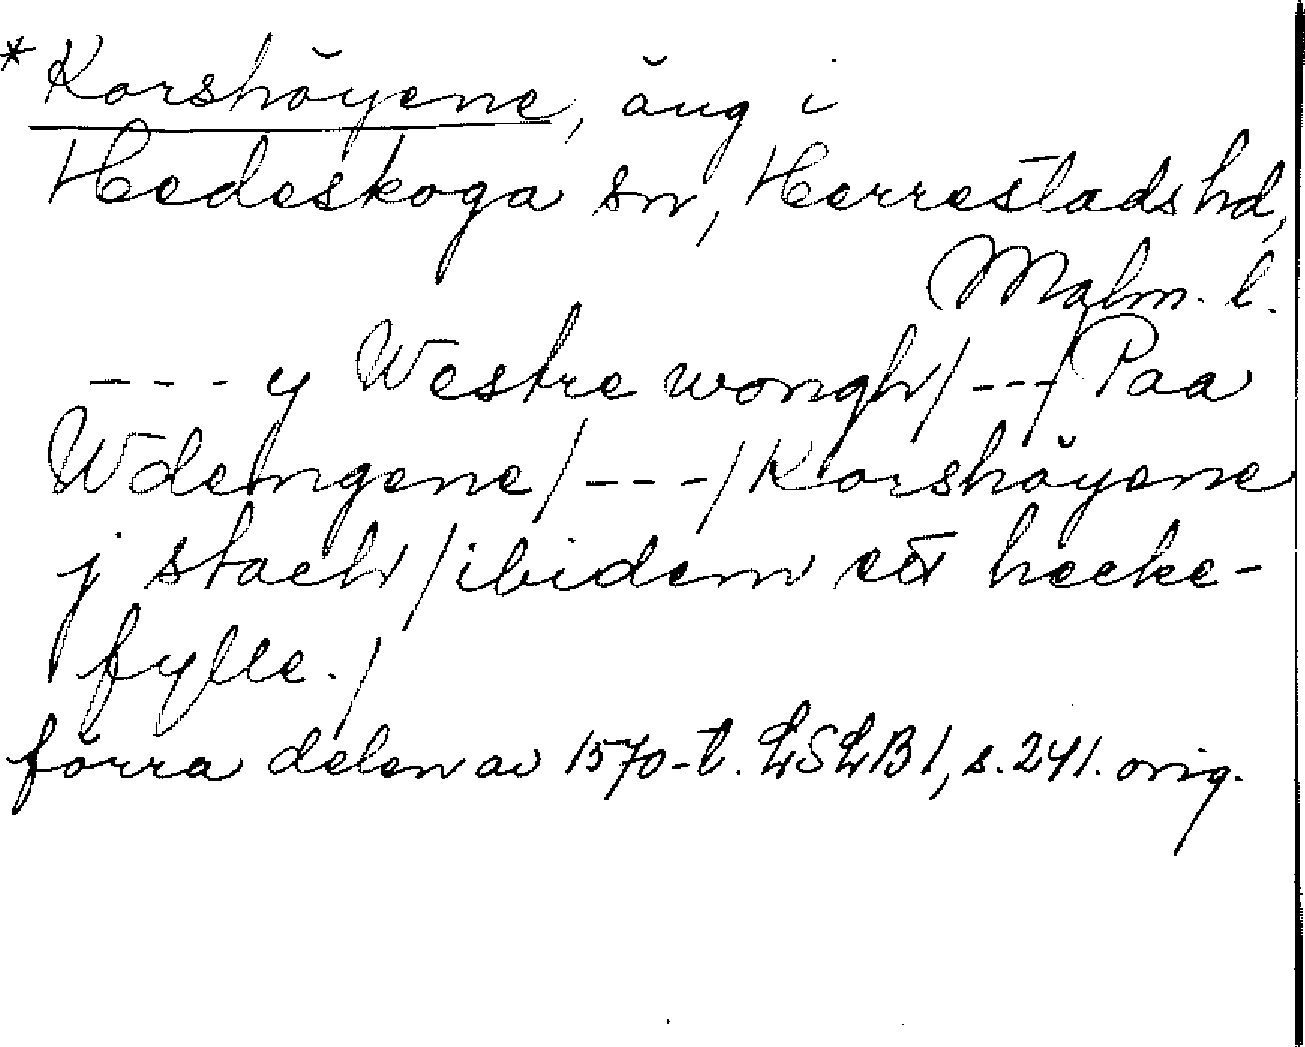 *Korshöyene, äng i
Hedeskoga sn, Herrestads hd,
Malm. l.
--- y Westre wongh/---/Paa
Wdengene/---/Korshöyene
j stach/ibidem ett hecke-
fylle./
förra delen av 1570-t. LSLB 1, s. 241. orig.